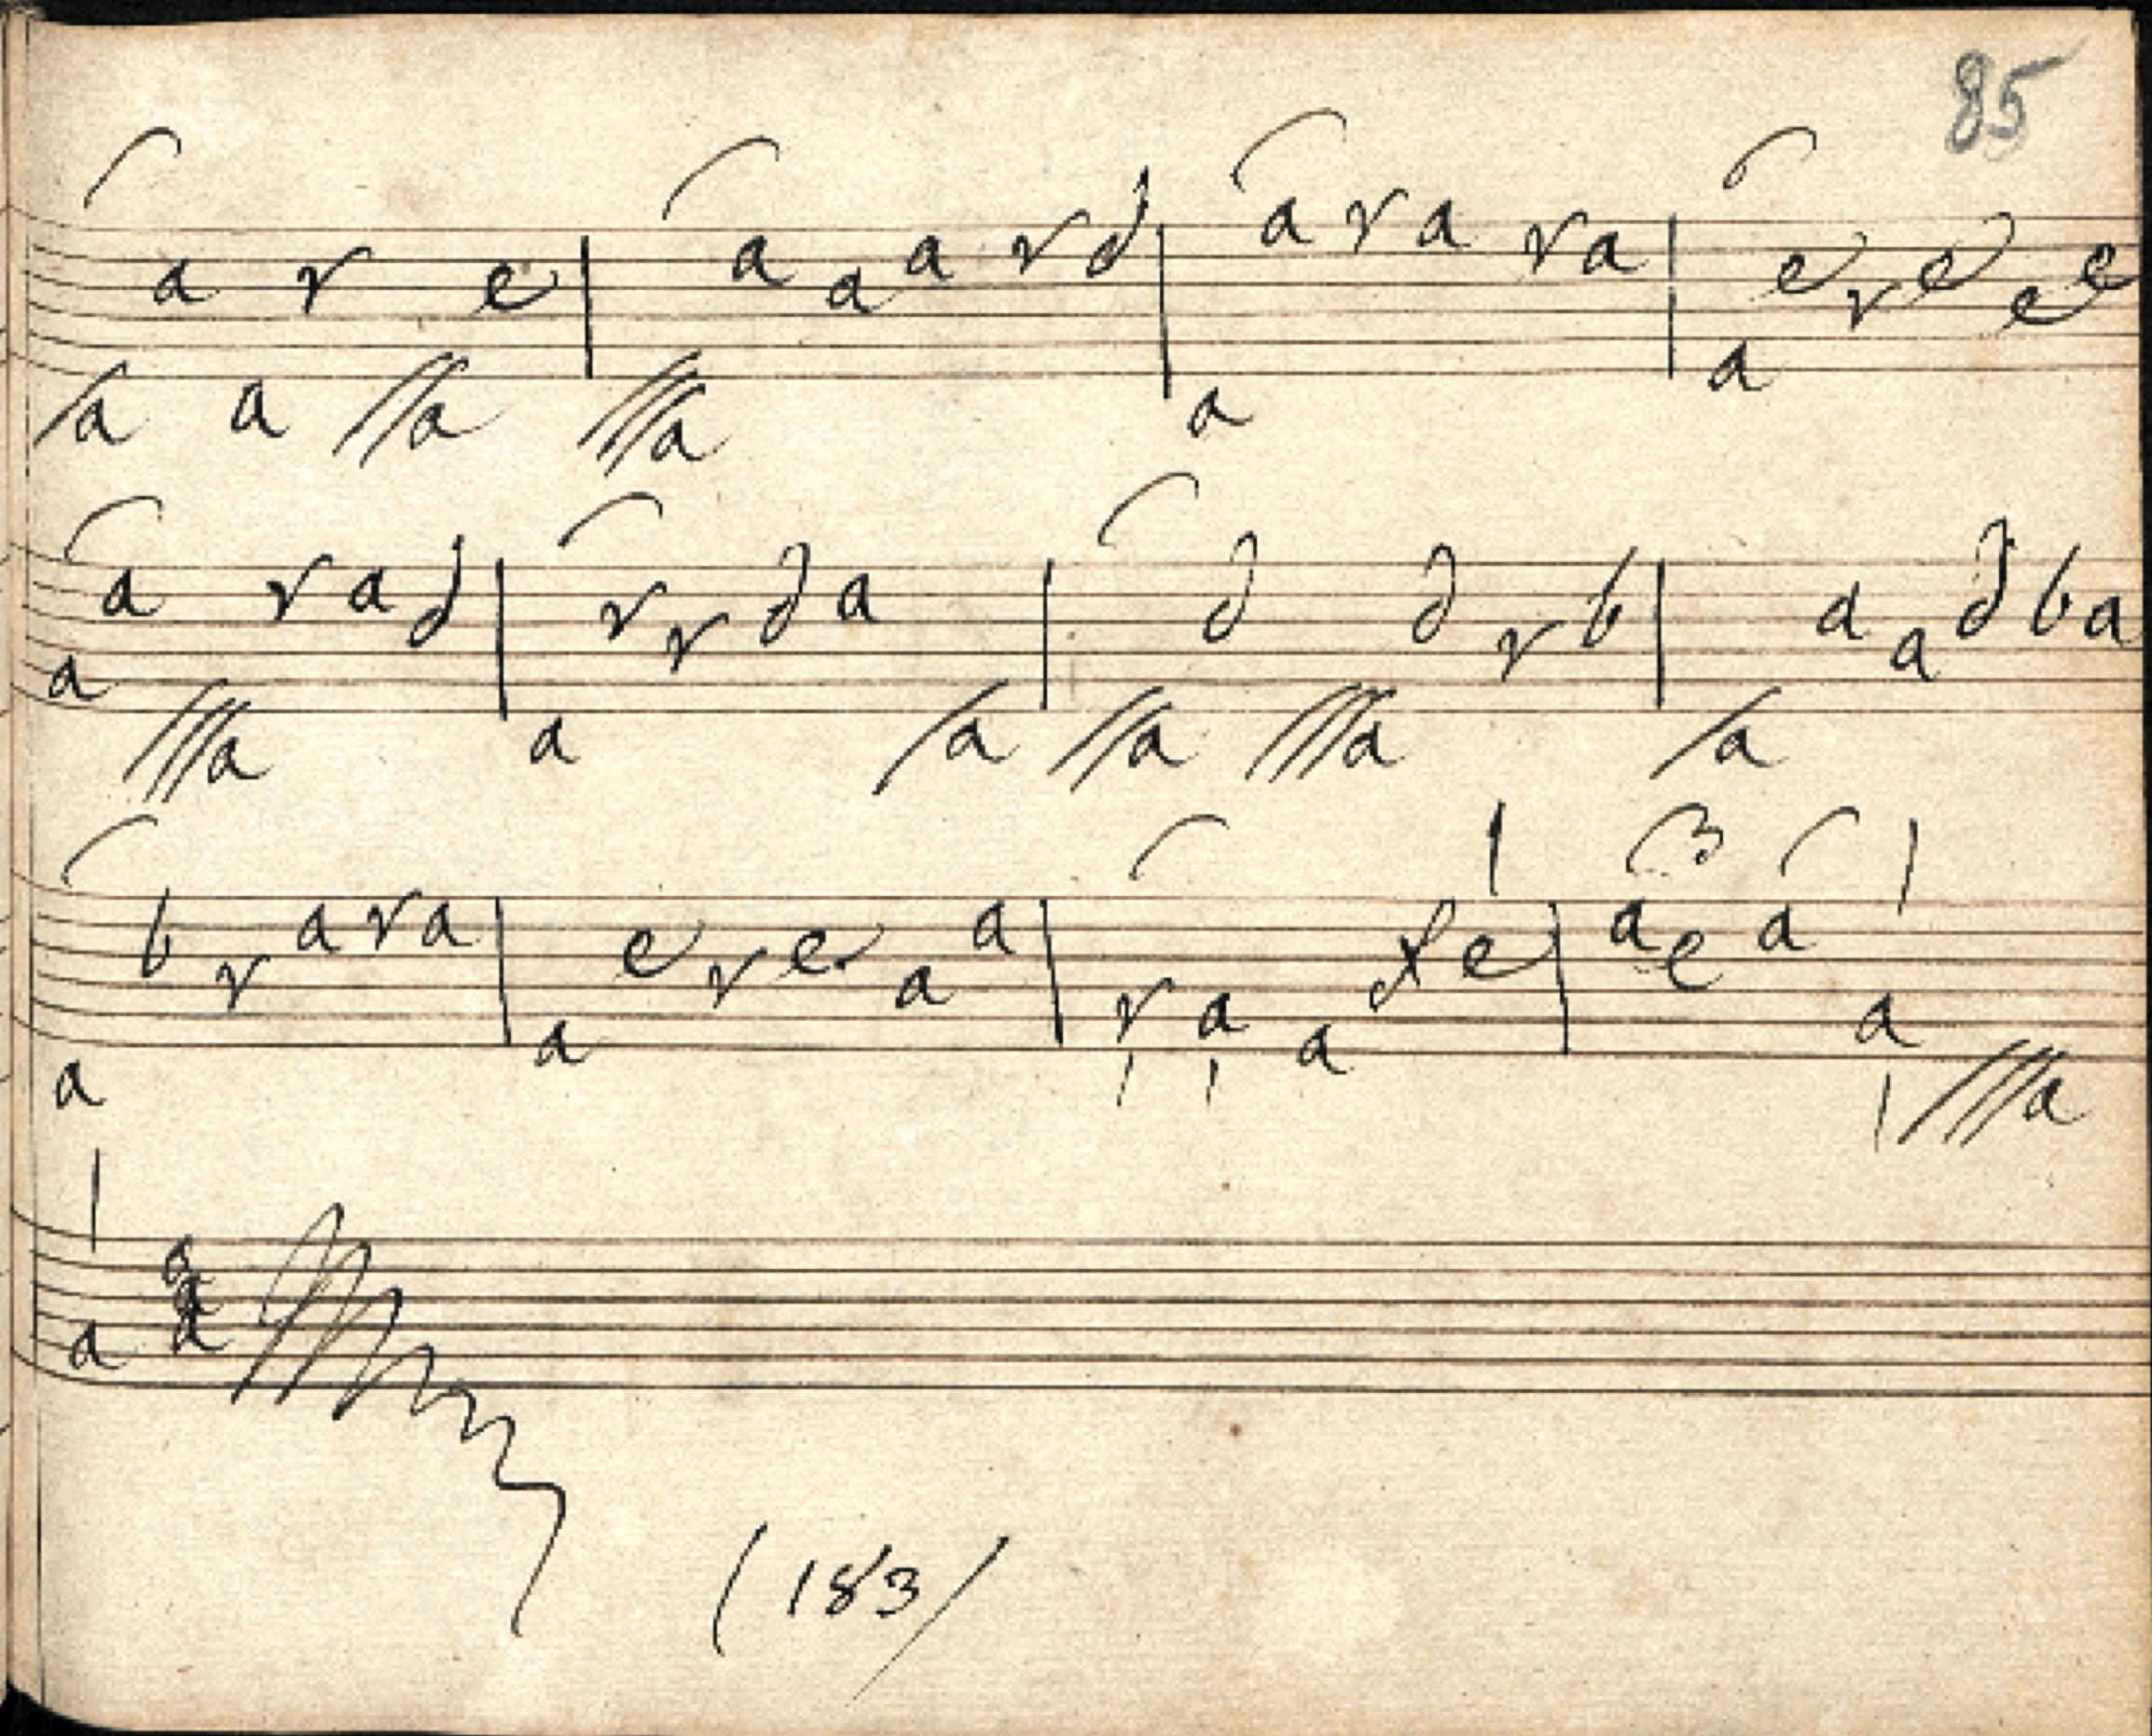 85
a r e | a a a r d | a r a r a | e r e e e
/a a //a ///a a a
a r a d | r r d a | d d r b | a a d b a
a ///a a /a //a ///a /a
b r a r a | e r e. a a | r a a x e | a e a a
a a ///a
a a
(183)